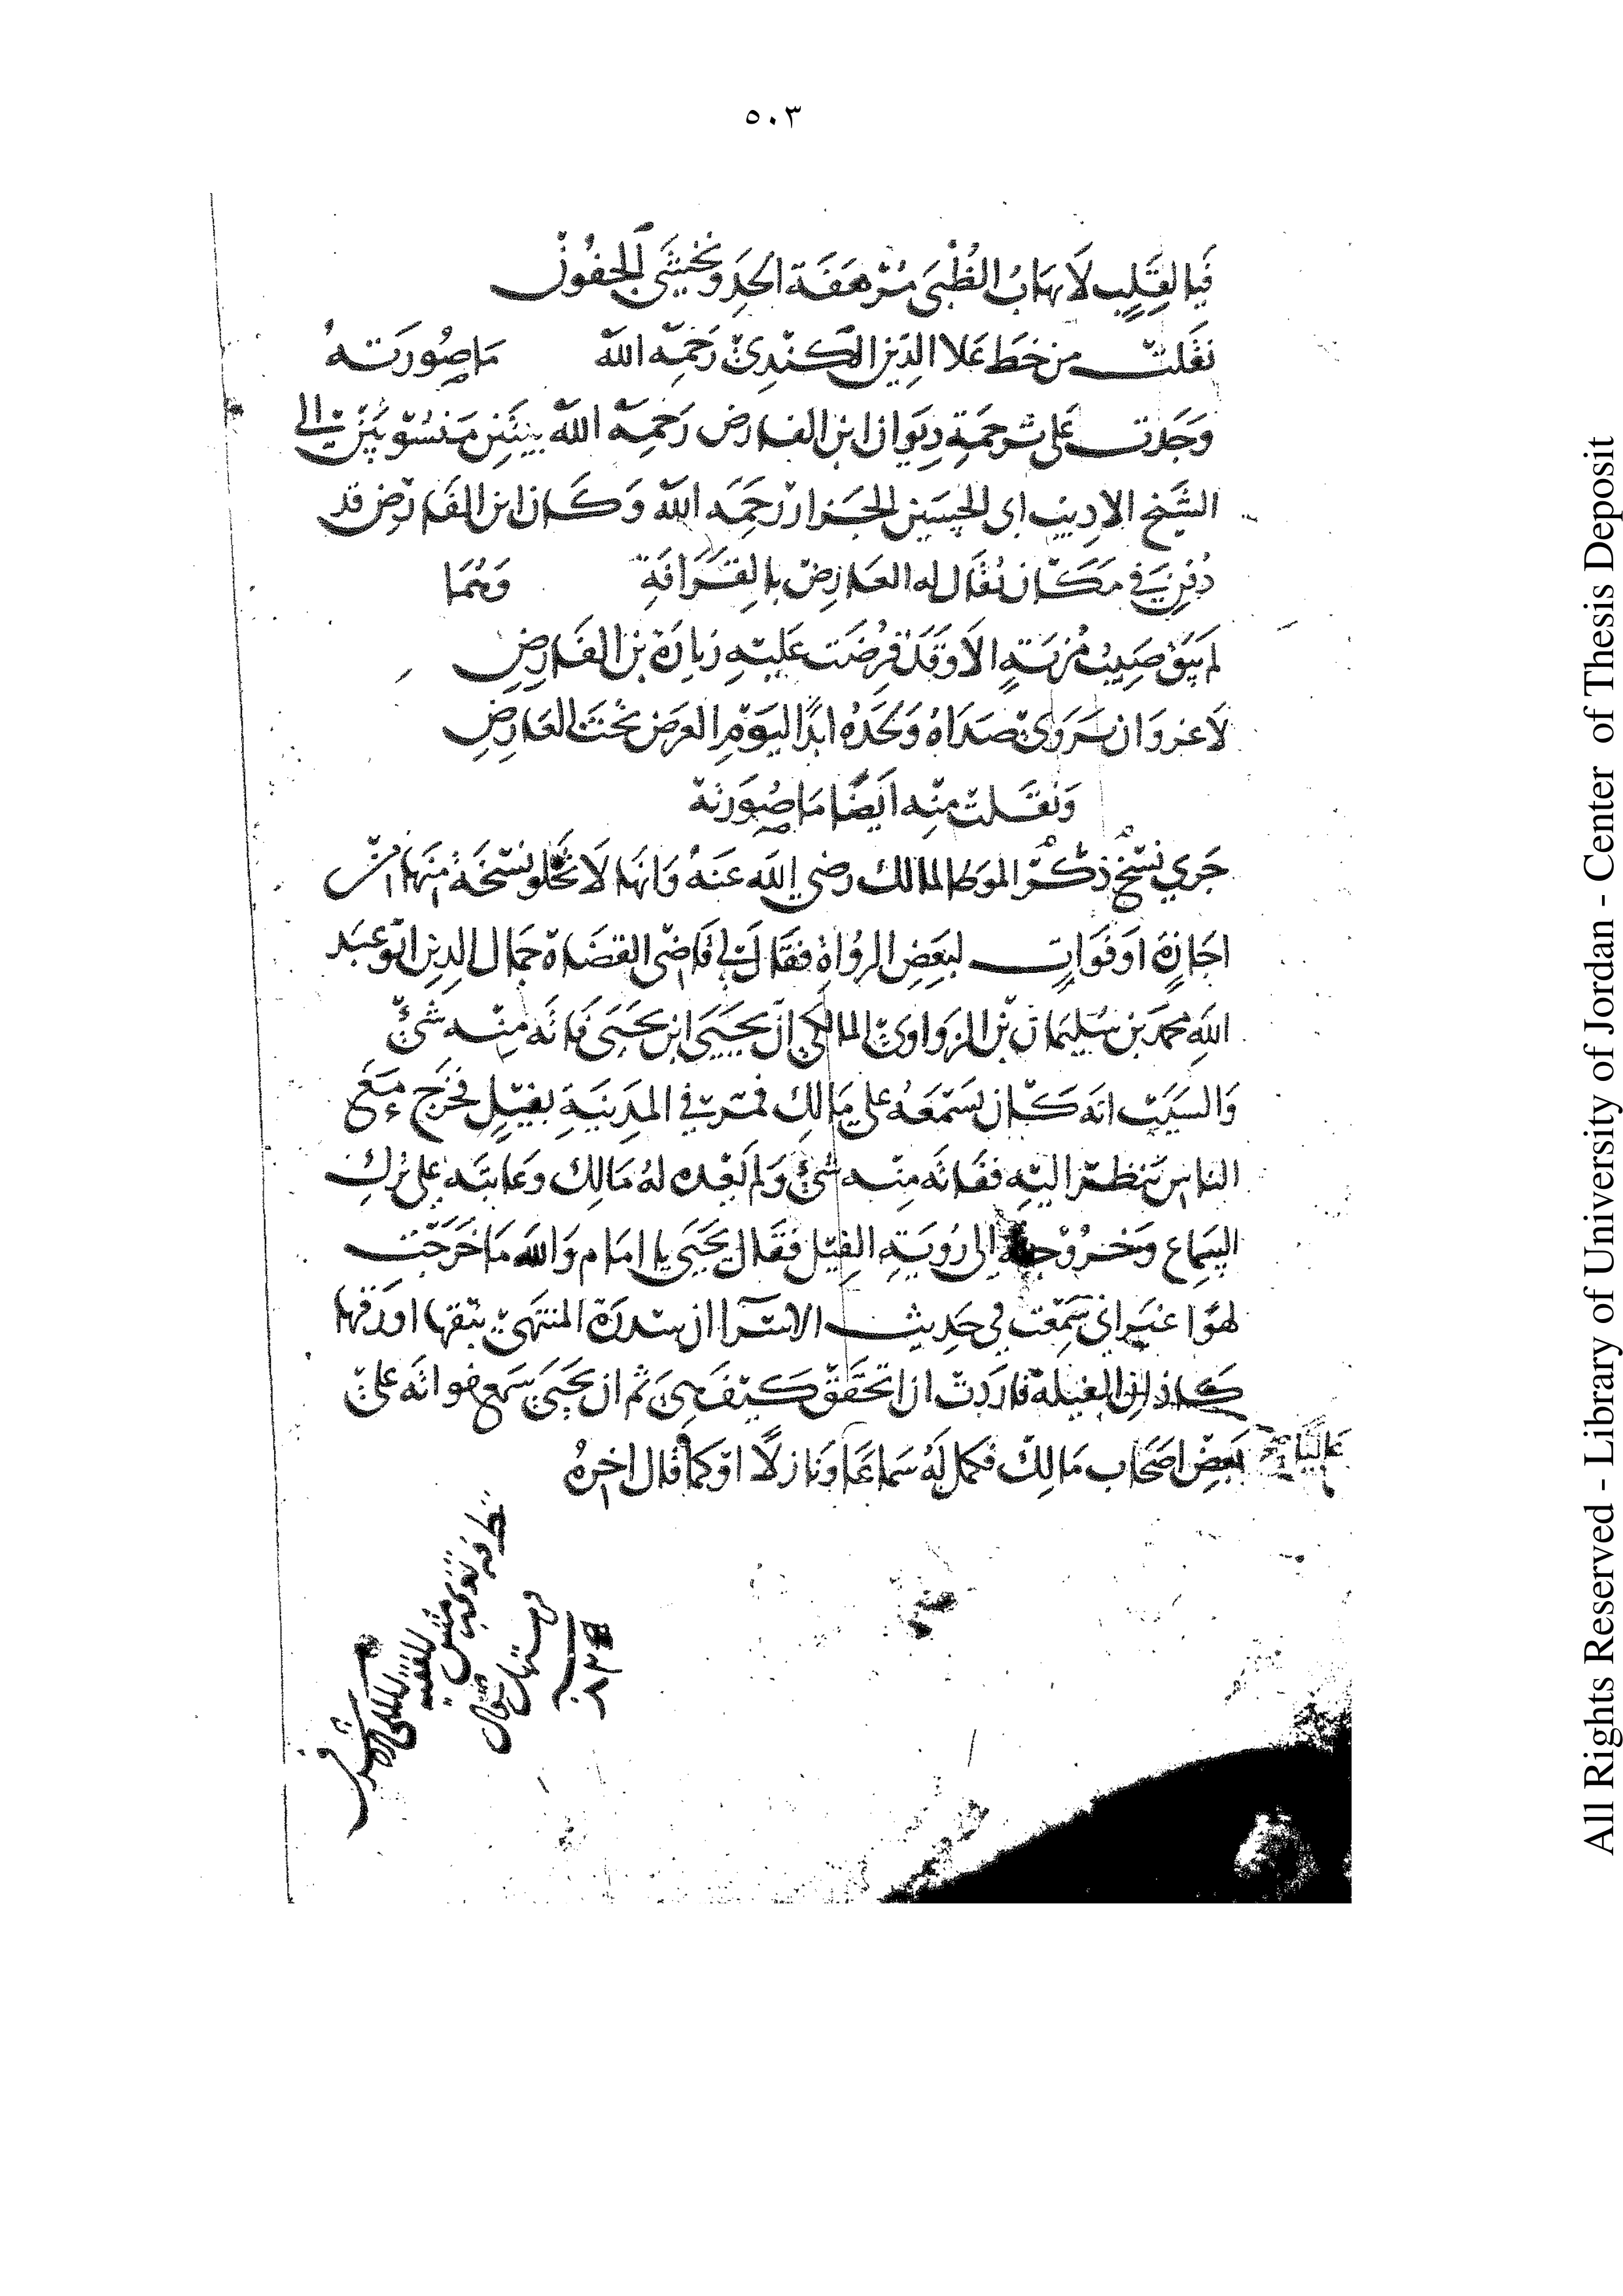 ٥٠٣
فيا لقلب لا يهاب الظبى مرهفة الحد ويخشى الجفون
نقلت من خط علا الدين الكندي رحمه الله ما صورته
وجدت على ترجمة ديوان ابن الفارض رحمه الله بيتين منسوبين الى
الشيخ الاديب ابى الحسين الجزار رحمه الله وكان ابن الفارض قد
دفن في مكان يقال له العارض بالقرافة وهما
لم يبق صيب مزنة الا وقد فرضت عليه زيارة بن الفارض
لا غرو ان يروى صداه ولحده ابدا ليوم العرض تحت العارض
ونقلت منه ايضا ما صورته
جرى نسخ ذكر الموطا لمالك رضي الله عنه وانها لا تخلو نسخة منها من
اجازة او فوات لبعض الرواة فقال لي قاضى القضاة جمال الدين ابو عبد
الله محمد بن سليمان بن الزواوى المالكي ان يحيى ابن يحيى فاته منه شئ
والسبب انه كان يسمعه على مالك فمر في المدينة بفيل فخرج مع
الناس ينظر اليه ففاته منه شئ ولم يعده له مالك وعاتبه على ترك
السماع وخروجه الى روية الفيل فقال يحيى يا امام والله ما خرجت
لهوا غير اني سمعت في حديث الاسرا ان سدرة المنتهى نبقها او ورقها
كاذان الفيلة فاردت ان اتحقق كيف هي ثم ان يحيى سمع فواته على
بعض اصحاب مالك فكمل له سماعا ونازلا او كما قال اخره
عاليا
سنة
All Rights Reserved - Library of University of Jordan - Center of Thesis Deposit